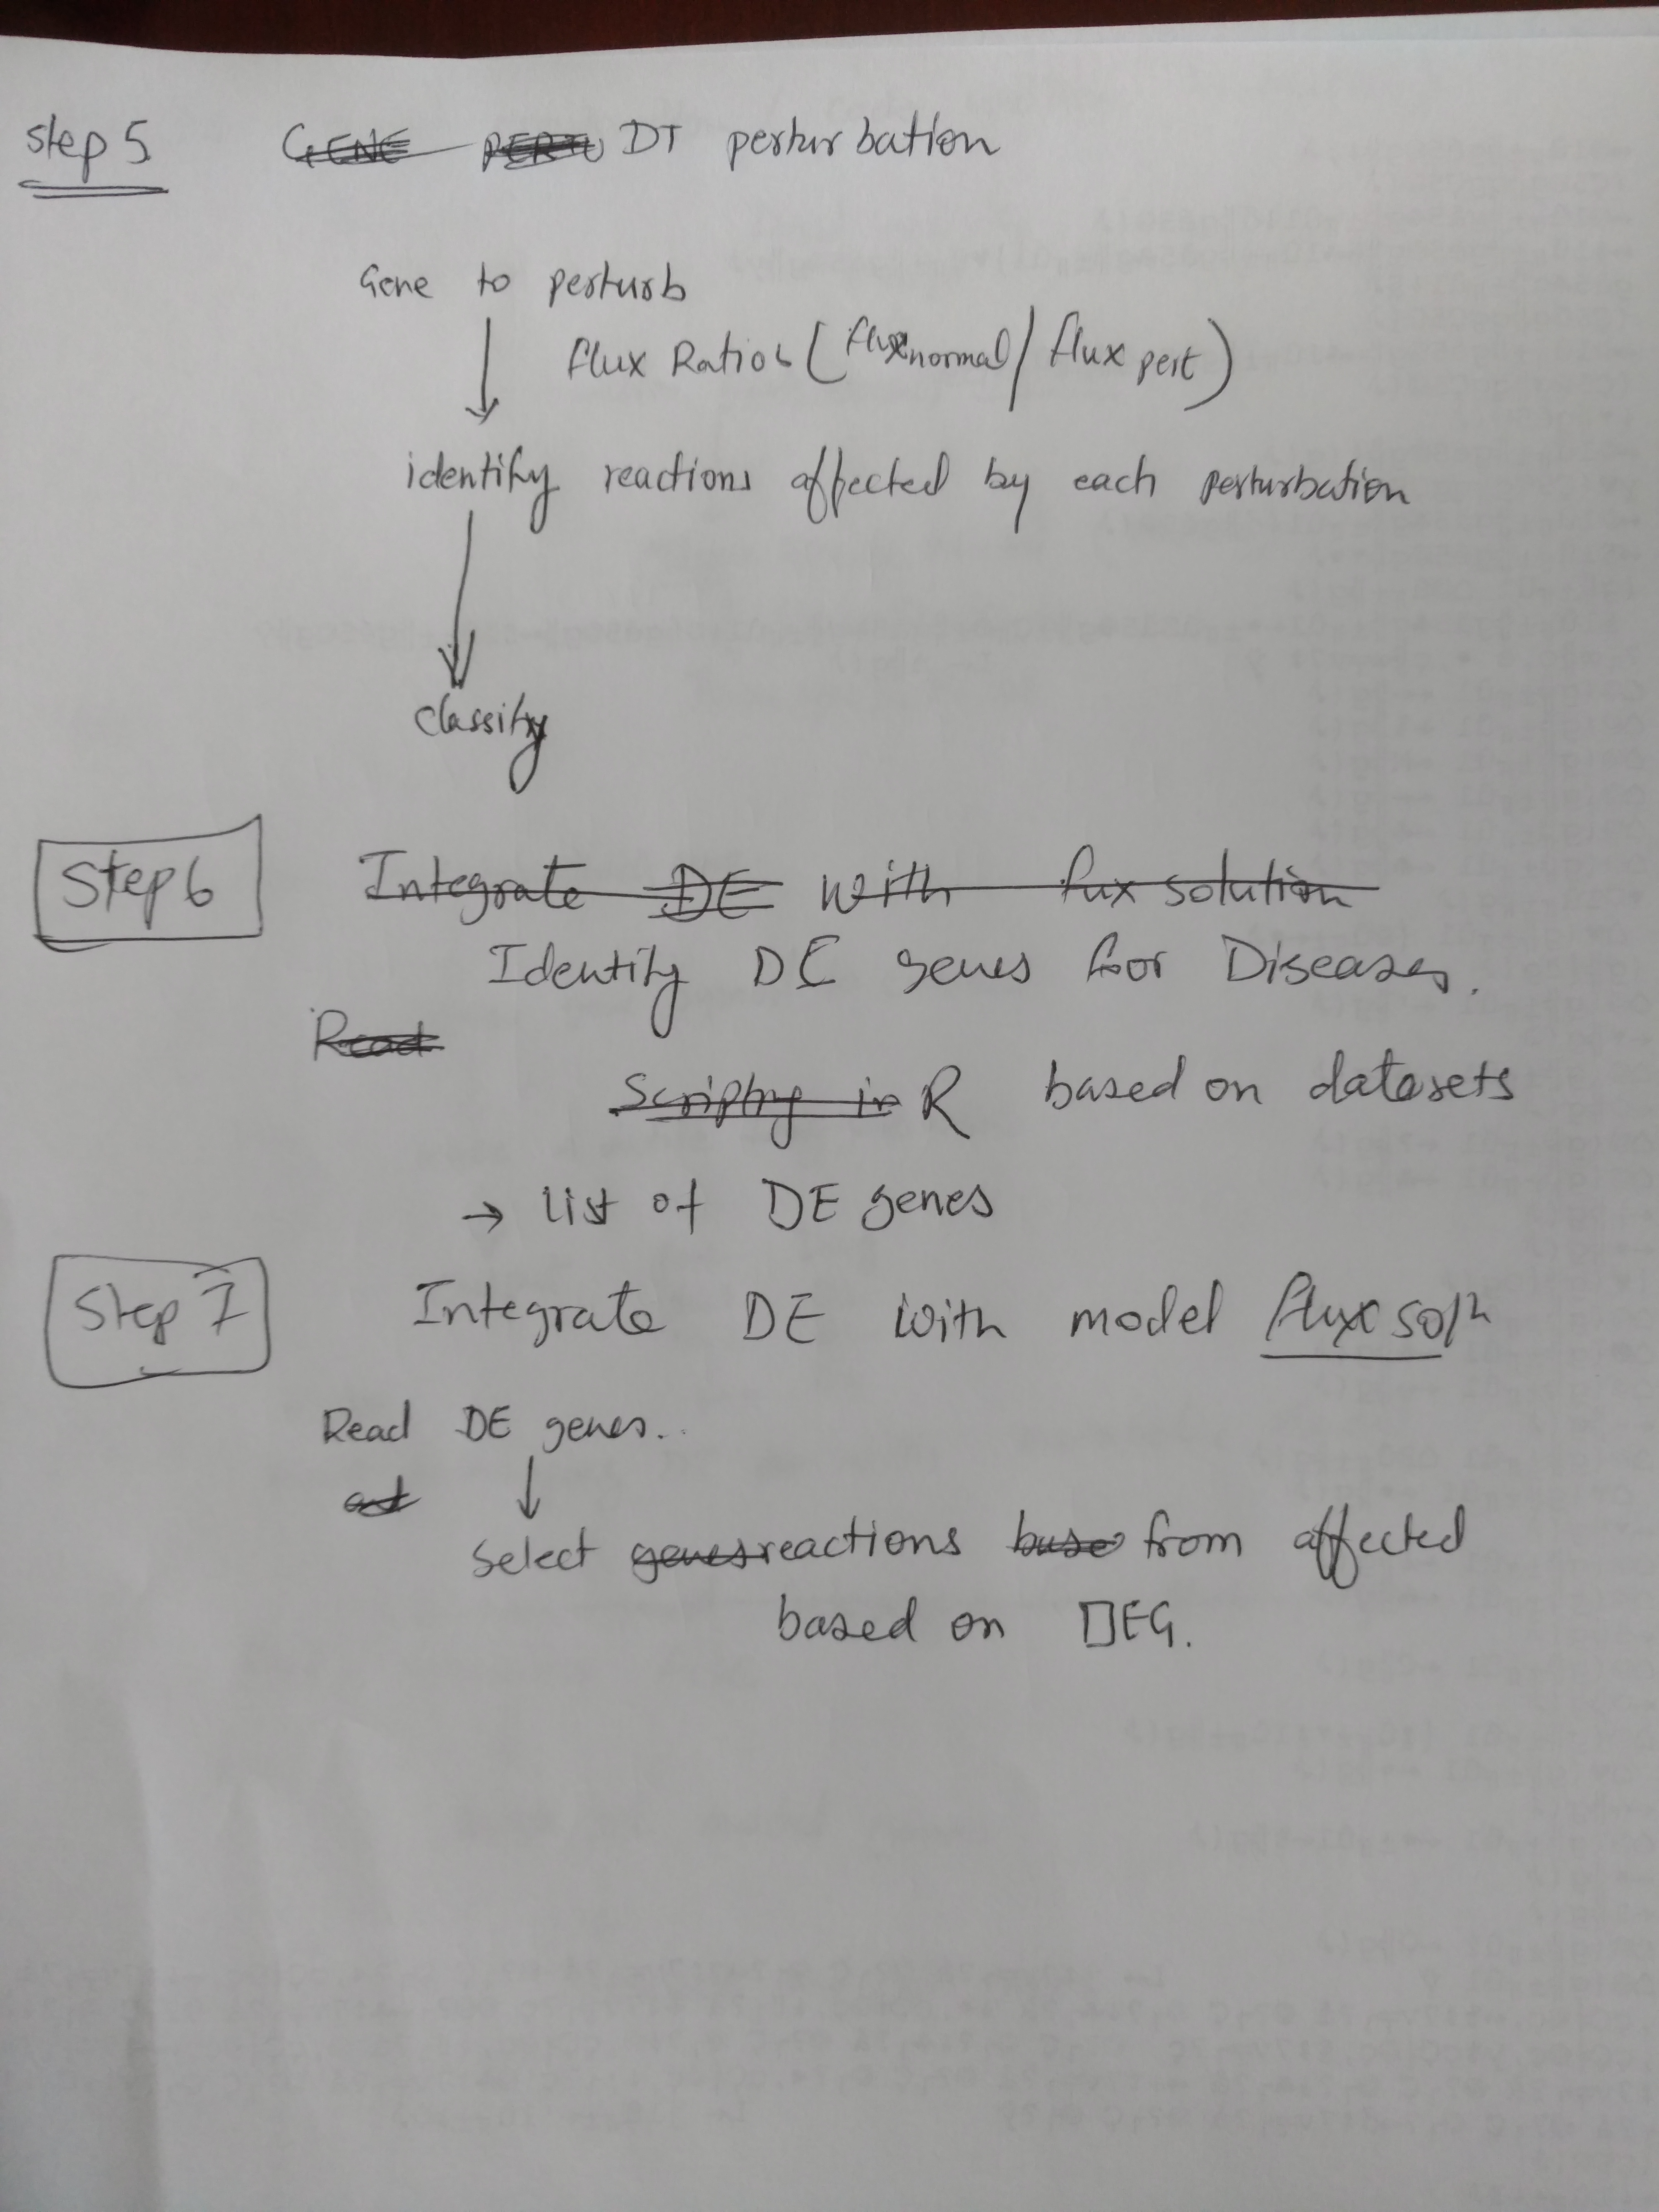 step 5 GENE PERTU DT perturbation
Gene to perturb
flux Ratios (flux normal / flux pert)
identify reactions affected by each perturbation
classify
Step 6 Integrate DE with fux solution
Identify DE genes for Diseases.
Read
Scripting in R based on datasets
→ list of DE genes
Step 7 Integrate DE with model flux soln
Read DE genes..
and
select genes reactions base from affected
based on DEG.